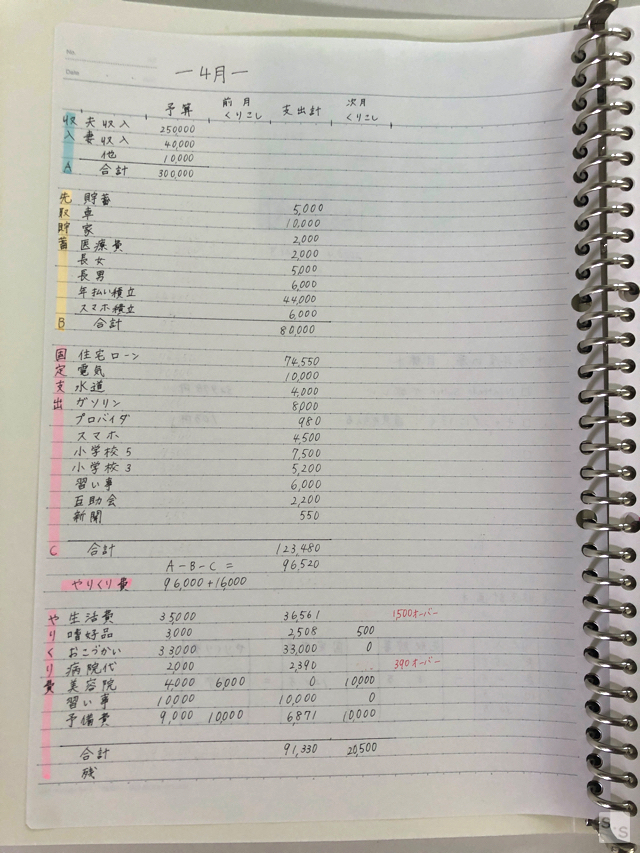 No.
Date
—4月—
予算 前月くりこし 支出計 次月くりこし
収入
夫収入 250000
妻収入 40,000
他 10,000
A 合計 300,000
先取貯蓄
貯蓄 5,000
車 10,000
家 2,000
医療費 2,000
長女 5,000
長男 6,000
年払い積立 44,000
スマホ積立 6,000
B 合計 80,000
固定支出
住宅ローン 74,550
電気 10,000
水道 4,000
ガソリン 8,000
プロバイダ 980
スマホ 4,500
小学校5 7,500
小学校3 5,200
習い事 6,000
互助会 2,200
新聞 550
C 合計 123,480
A-B-C= 96,520
やりくり費 96,000+16,000
やりくり費
生活費 35,000 36,561 1500オーバー
嗜好品 3,000 2,508 500
おこづかい 33,000 33,000 0
病院代 2,000 2,390 390オーバー
美容院 4,000 6,000 0 10,000
習い事 10,000 10,000 0
予備費 9,000 10,000 6871 10,000
合計 91,330 20,500
残